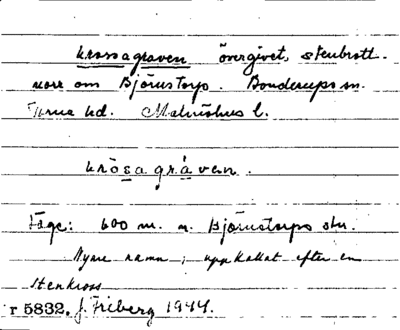 krossagraven övergivet stenbrott
norr om Björnstorp. Bonderups sn.
Torna hd. Malmöhus l.
kròsagràven.
Läge: 600 m. n. Björnstorps stn.
Nyare namn; uppkallat efter en
stenkross
r 5832. J. Friberg 1944.